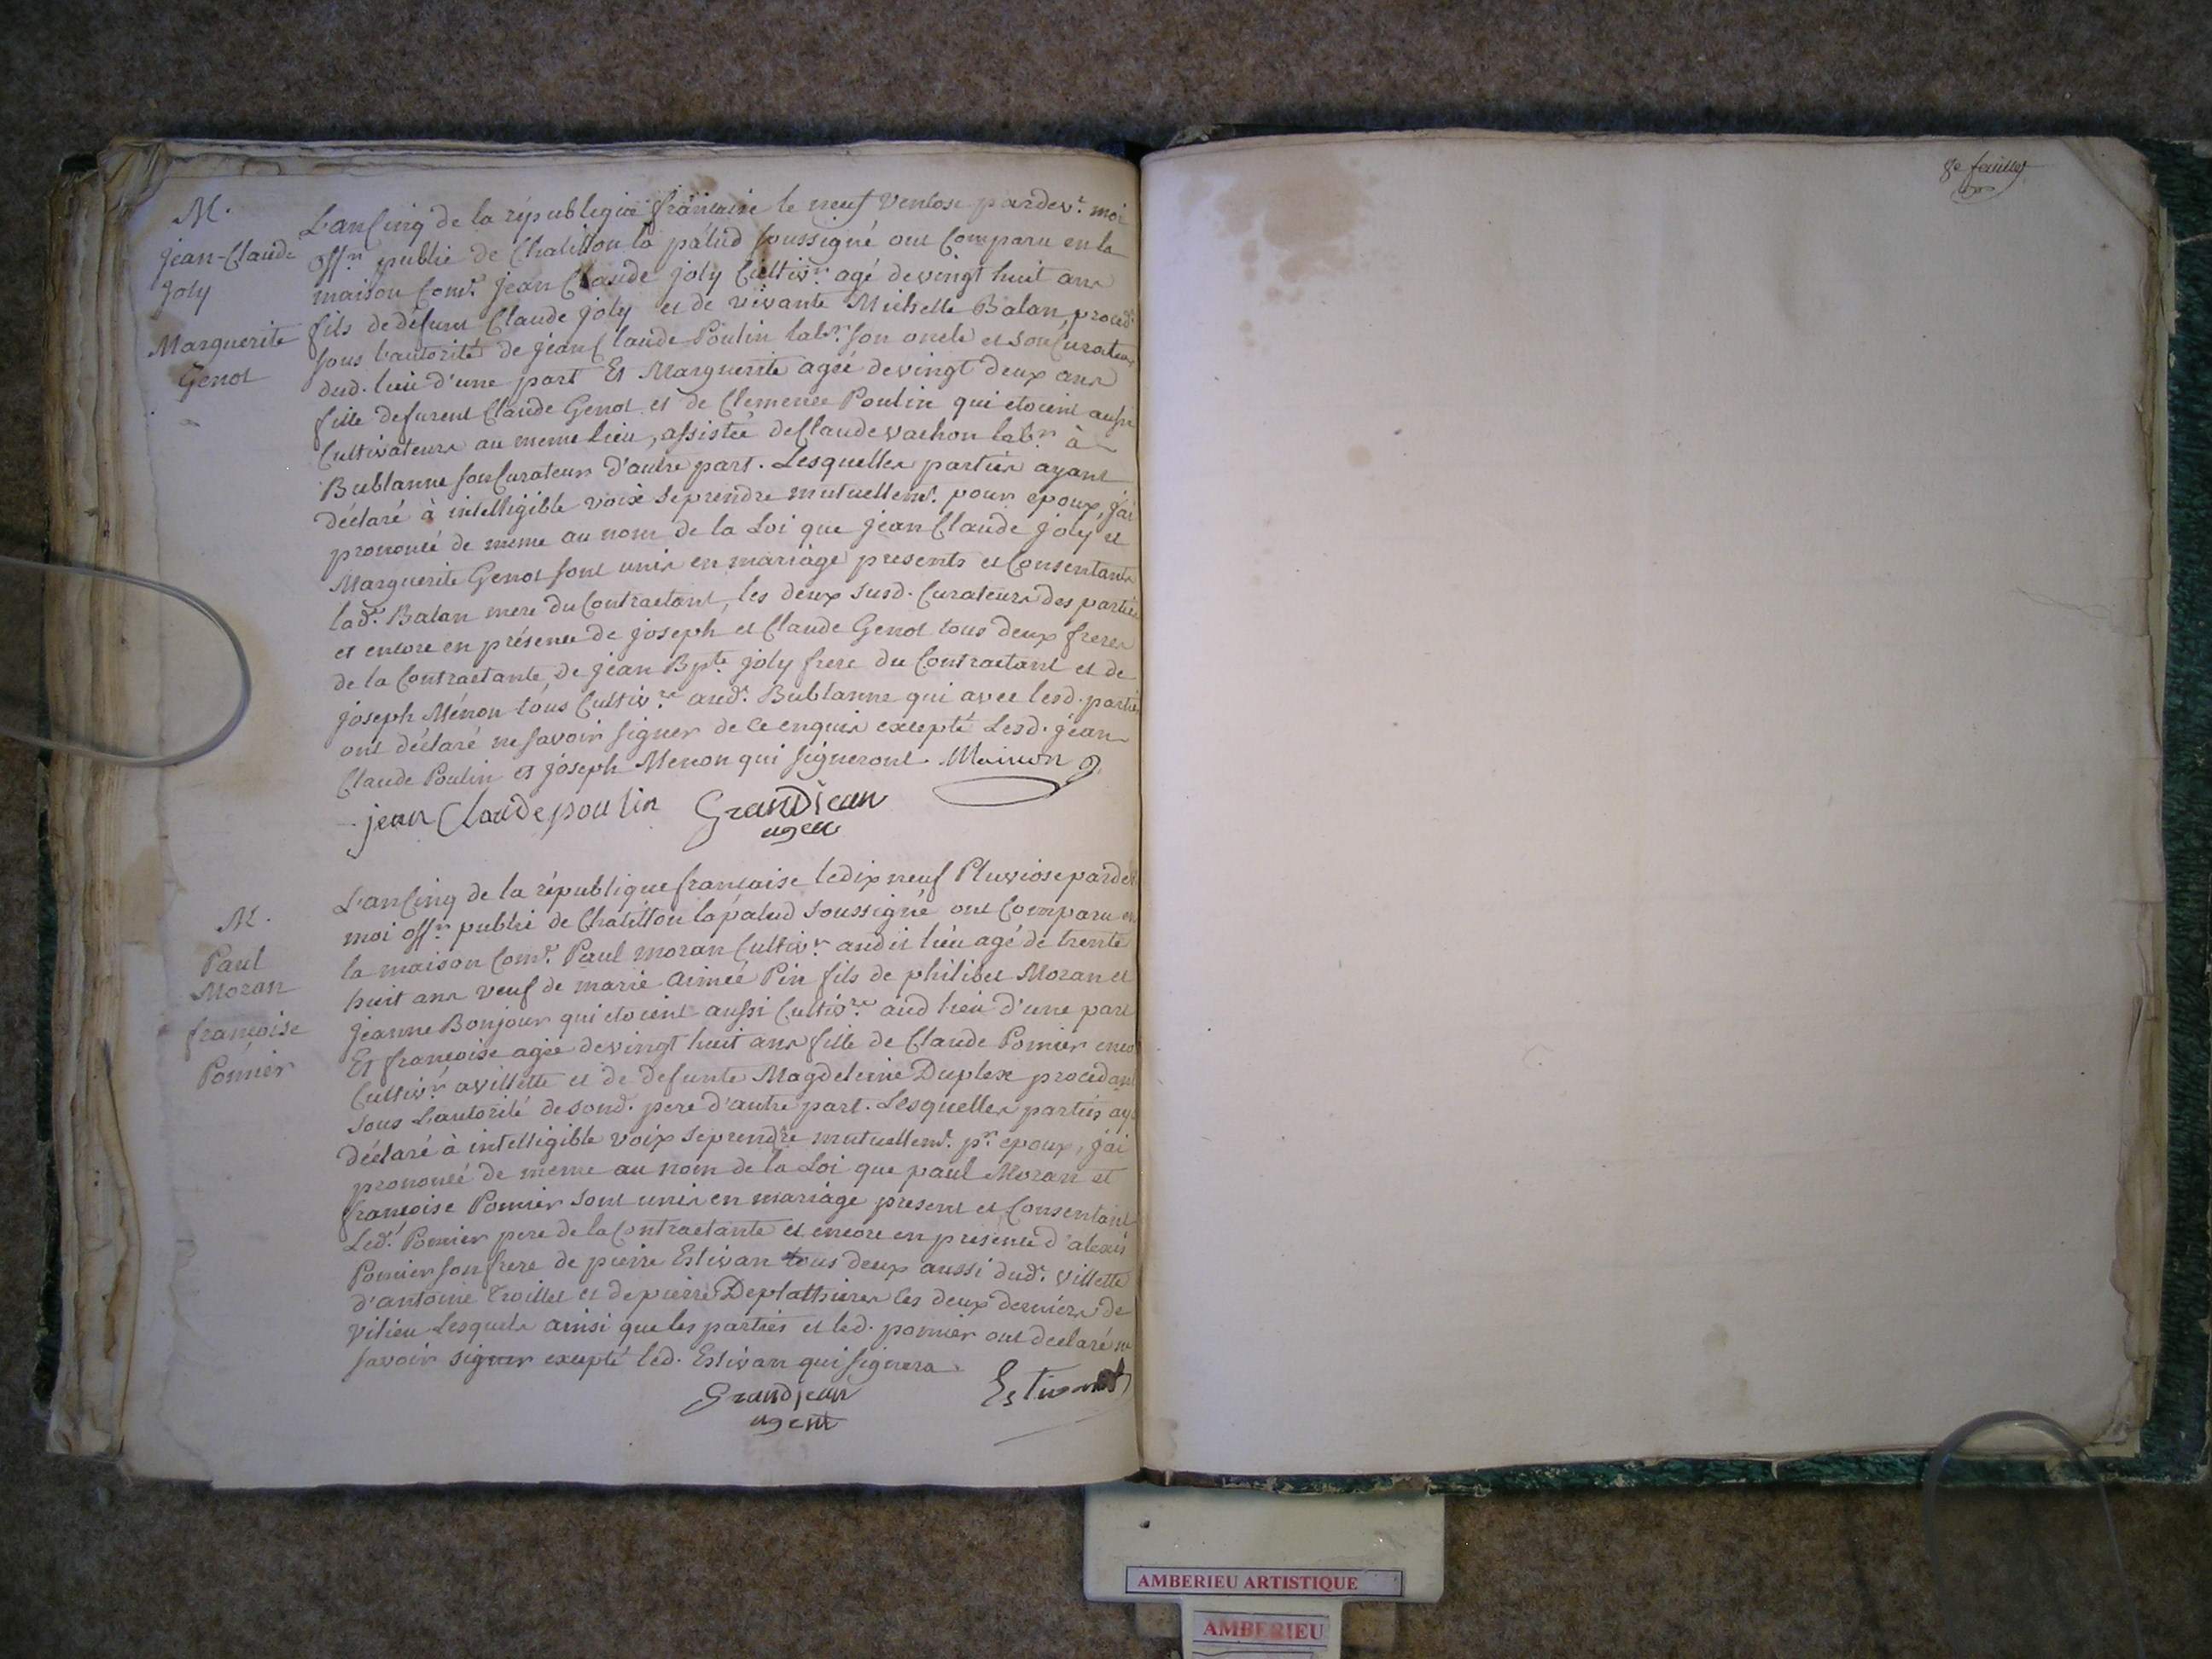 M.
Jean-Claude
Joly
Marguerite
Genot
L'an Cinq de la république française le neuf Ventose pardevt. moi
offr. public de Chatillon la palud soussigné ont Comparu en la
maison Come. Jean Claude Joly Cultivr. agé de vingt huit ans
fils de défunt Claude Joly et de vivante Michelle Balan, procedt.
sous l'autorité de Jean Claude Poulin labr. son oncle et son Curateur
dud. lieu d'une part Et Marguerite agée de vingt deux ans
fille defurent Claude Genot et de Clemence Poulin qui etoient aussi
Cultivateurs au meme lieu, assistée de Claude vachon labr. à
Bublanne son Curateur d'autre part. Lesquelles parties ayant
déclaré à intelligible voix se prendre mutuellemt. pour epoux, j'ai
prononcé de meme au nom de la Loi que Jean Claude Joly et
Marguerite Genot sont unis en mariage presents et Consentants
lade. Balan mere du Contractant, les deux susd. Curateurs des parties
et encore en présence de Joseph et Claude Genot tous deux freres
de la Contractante, de Jean Bpte. Joly frere du Contractant et de
Joseph Ménon tous Cultivrs. aud. Bublanne qui avec lesd. parties
ont déclaré ne savoir signer de ce enquis excepté Lesd. Jean
Claude Poulin et Joseph Menon qui signeront. Mainon
jean Claude poulin Grandjean
agent
M.
Paul
Moran
françoise
Pomier
L'an Cinq de la république francaise le dix neuf Pluviose pardet
moi offr. public de Chatillon la palud soussigné ont Comparu en
la maison Come. Paul moran Cultivr. audit lieu agé de trente
huit ans veuf de marie Aimée Pin fils de philibet Moran et
Jeanne Bonjour qui etoient aussi Cultivrs. aud lieu d'une part
Et françoise agée de vingt huit ans fille de Claude Pomier
Cultivr. a villette et de defunte Magdeleine Duplex procedant
sous L'autorité de sond. pere d'autre part. Lesquelles parties ayt
déclaré à intelligible voix se prendre mutuellemt. pr. epoux, j'ai
prononcé de meme au nom de la Loi que paul Moran et
françoise Pomier sont unis en mariage present et Consentant
Led. Pomier pere de la Contractante et encore en presence d'alexis
Pomier son frere de pierre Estivan tous deux aussi dud. villette
d'antoine Troillet et de pierre Deplathieres les deux derniers de
vilieu Lesquels ainsi que les parties et led. pomier ont declaré ne
savoir signer excepté led. Estivan qui signera
Grandjean
agent
8e feuillet
AMBERIEU ARTISTIQUE
AMBERIEU